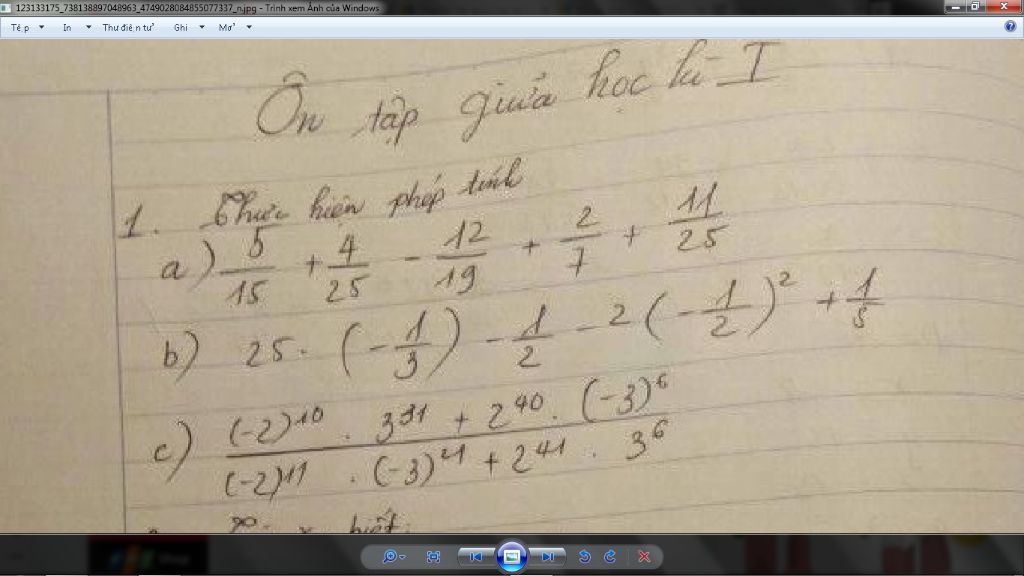 123133175_738138897048963_4749028084855077337_n.jpg - Trình xem Ảnh của Windows
Tệp In Thư điện tử Ghi Mở
Ôn tập giữa học kì I
1. Thực hiện phép tính
a) 5/15 + 4/25 - 12/19 + 2/7 + 11/25
b) 25 . (-1/3) - 1/2 - 2(-1/2)² + 1/5
c) ((-2)¹⁰ . 3³¹ + 2⁴⁰ . (-3)⁶) / ((-2)¹¹ . (-3)²¹ + 2⁴¹ . 3⁶)
biết: